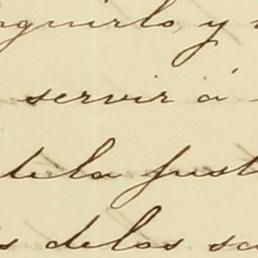 nguirlo, y
servir á
de la just
s delos sa